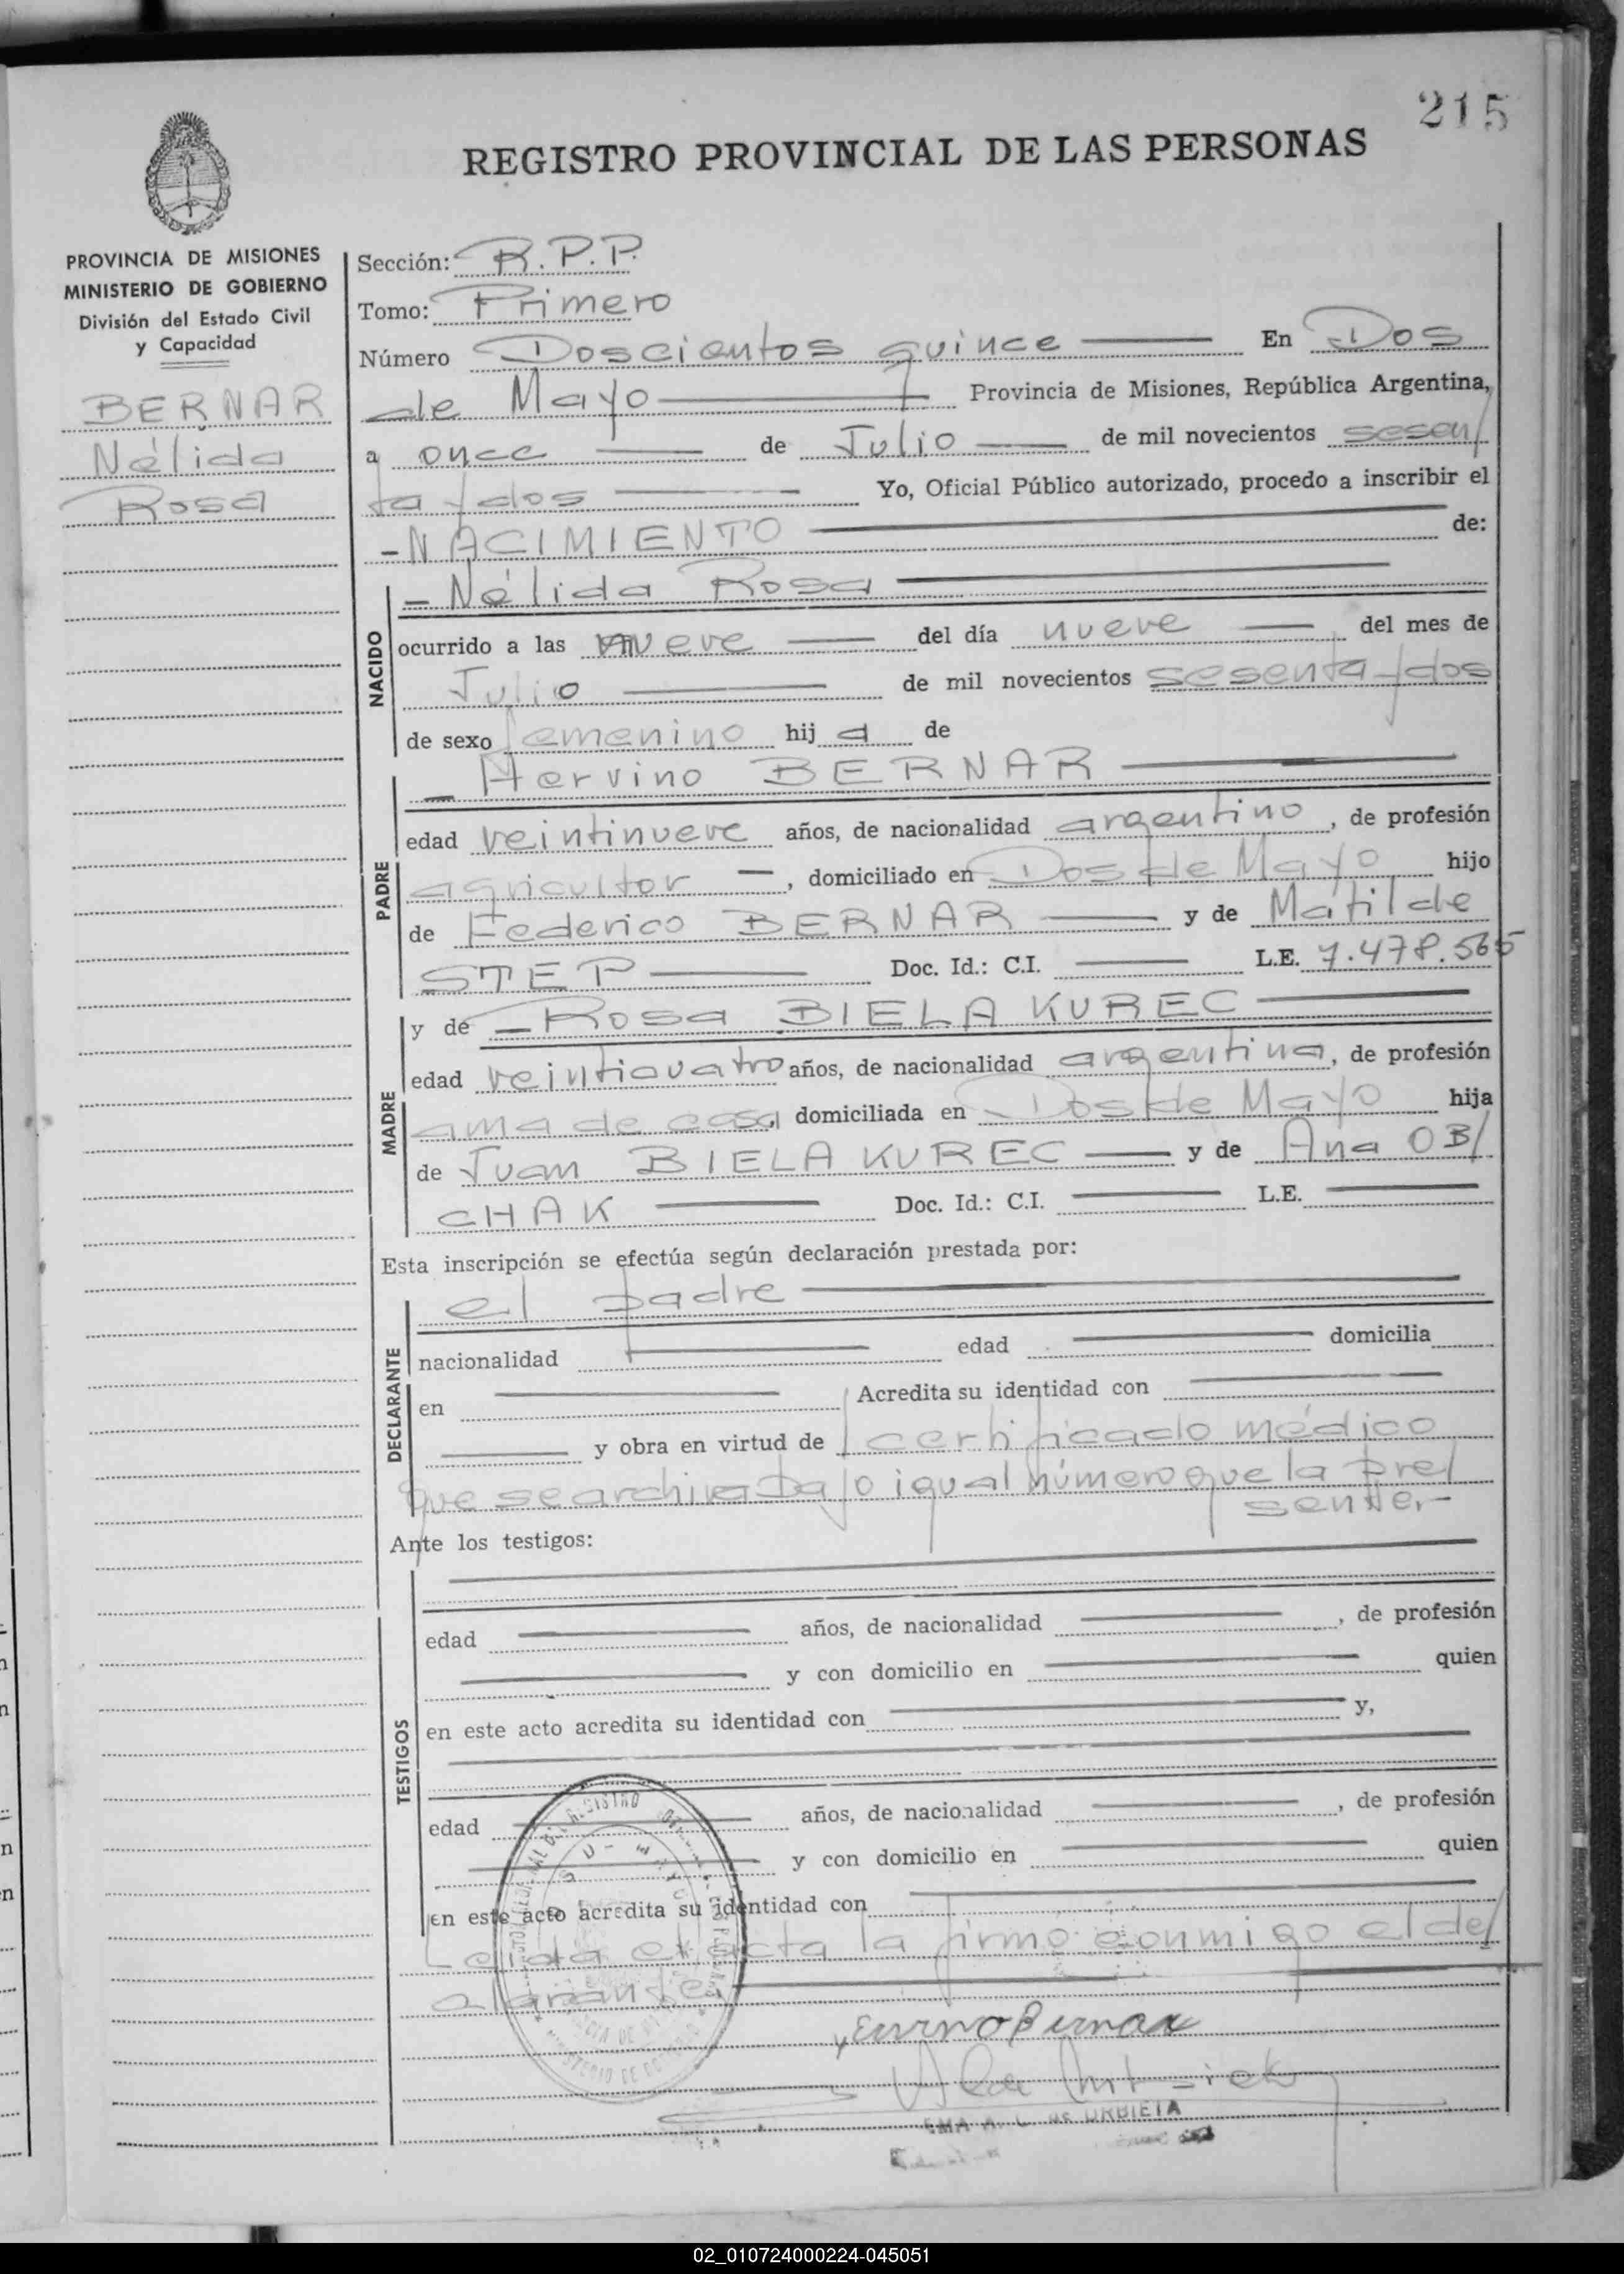 215
REGISTRO PROVINCIAL DE LAS PERSONAS
PROVINCIA DE MISIONES
MINISTERIO DE GOBIERNO
División del Estado Civil
y Capacidad
BERNAR
Nélida
Rosa
Sección: R.P.P.
Tomo: Primero
Número Doscientos quince En Dos
de Mayo Provincia de Misiones, República Argentina,
a once de Julio de mil novecientos sesen/
ta y dos Yo, Oficial Público autorizado, procedo a inscribir el
- NACIMIENTO de:
NACIDO
- Nélida Rosa
ocurrido a las nueve del día nueve del mes de
Julio de mil novecientos sesenta y dos
de sexo femenino hija de
PADRE
- Hervino BERNAR
edad veintinueve años, de nacionalidad argentino, de profesión
agricultor, domiciliado en Dos de Mayo hijo
de Federico BERNAR y de Matilde
STEP Doc. Id.: C.I. L.E. 7.478.565
MADRE
y de - Rosa BIELAKUREC
edad veinticuatro años, de nacionalidad argentina, de profesión
ama de casa, domiciliada en Dos de Mayo hija
de Juan BIELAKUREC y de Ana OB/
CHAK Doc. Id.: C.I. L.E.
Esta inscripción se efectúa según declaración prestada por:
DECLARANTE
el padre
nacionalidad edad domicilia
en Acredita su identidad con
y obra en virtud de certificado médico
que se archiva bajo igual número que la pre/
sente.-
Ante los testigos:
TESTIGOS
edad años, de nacionalidad , de profesión
y con domicilio en quien
en este acto acredita su identidad con y,
edad años, de nacionalidad , de profesión
y con domicilio en quien
en este acto acredita su identidad con
Leida el acta la firmó conmigo el de/
clarante.
Bernar
DE URBIETA
02_010724000224-045051